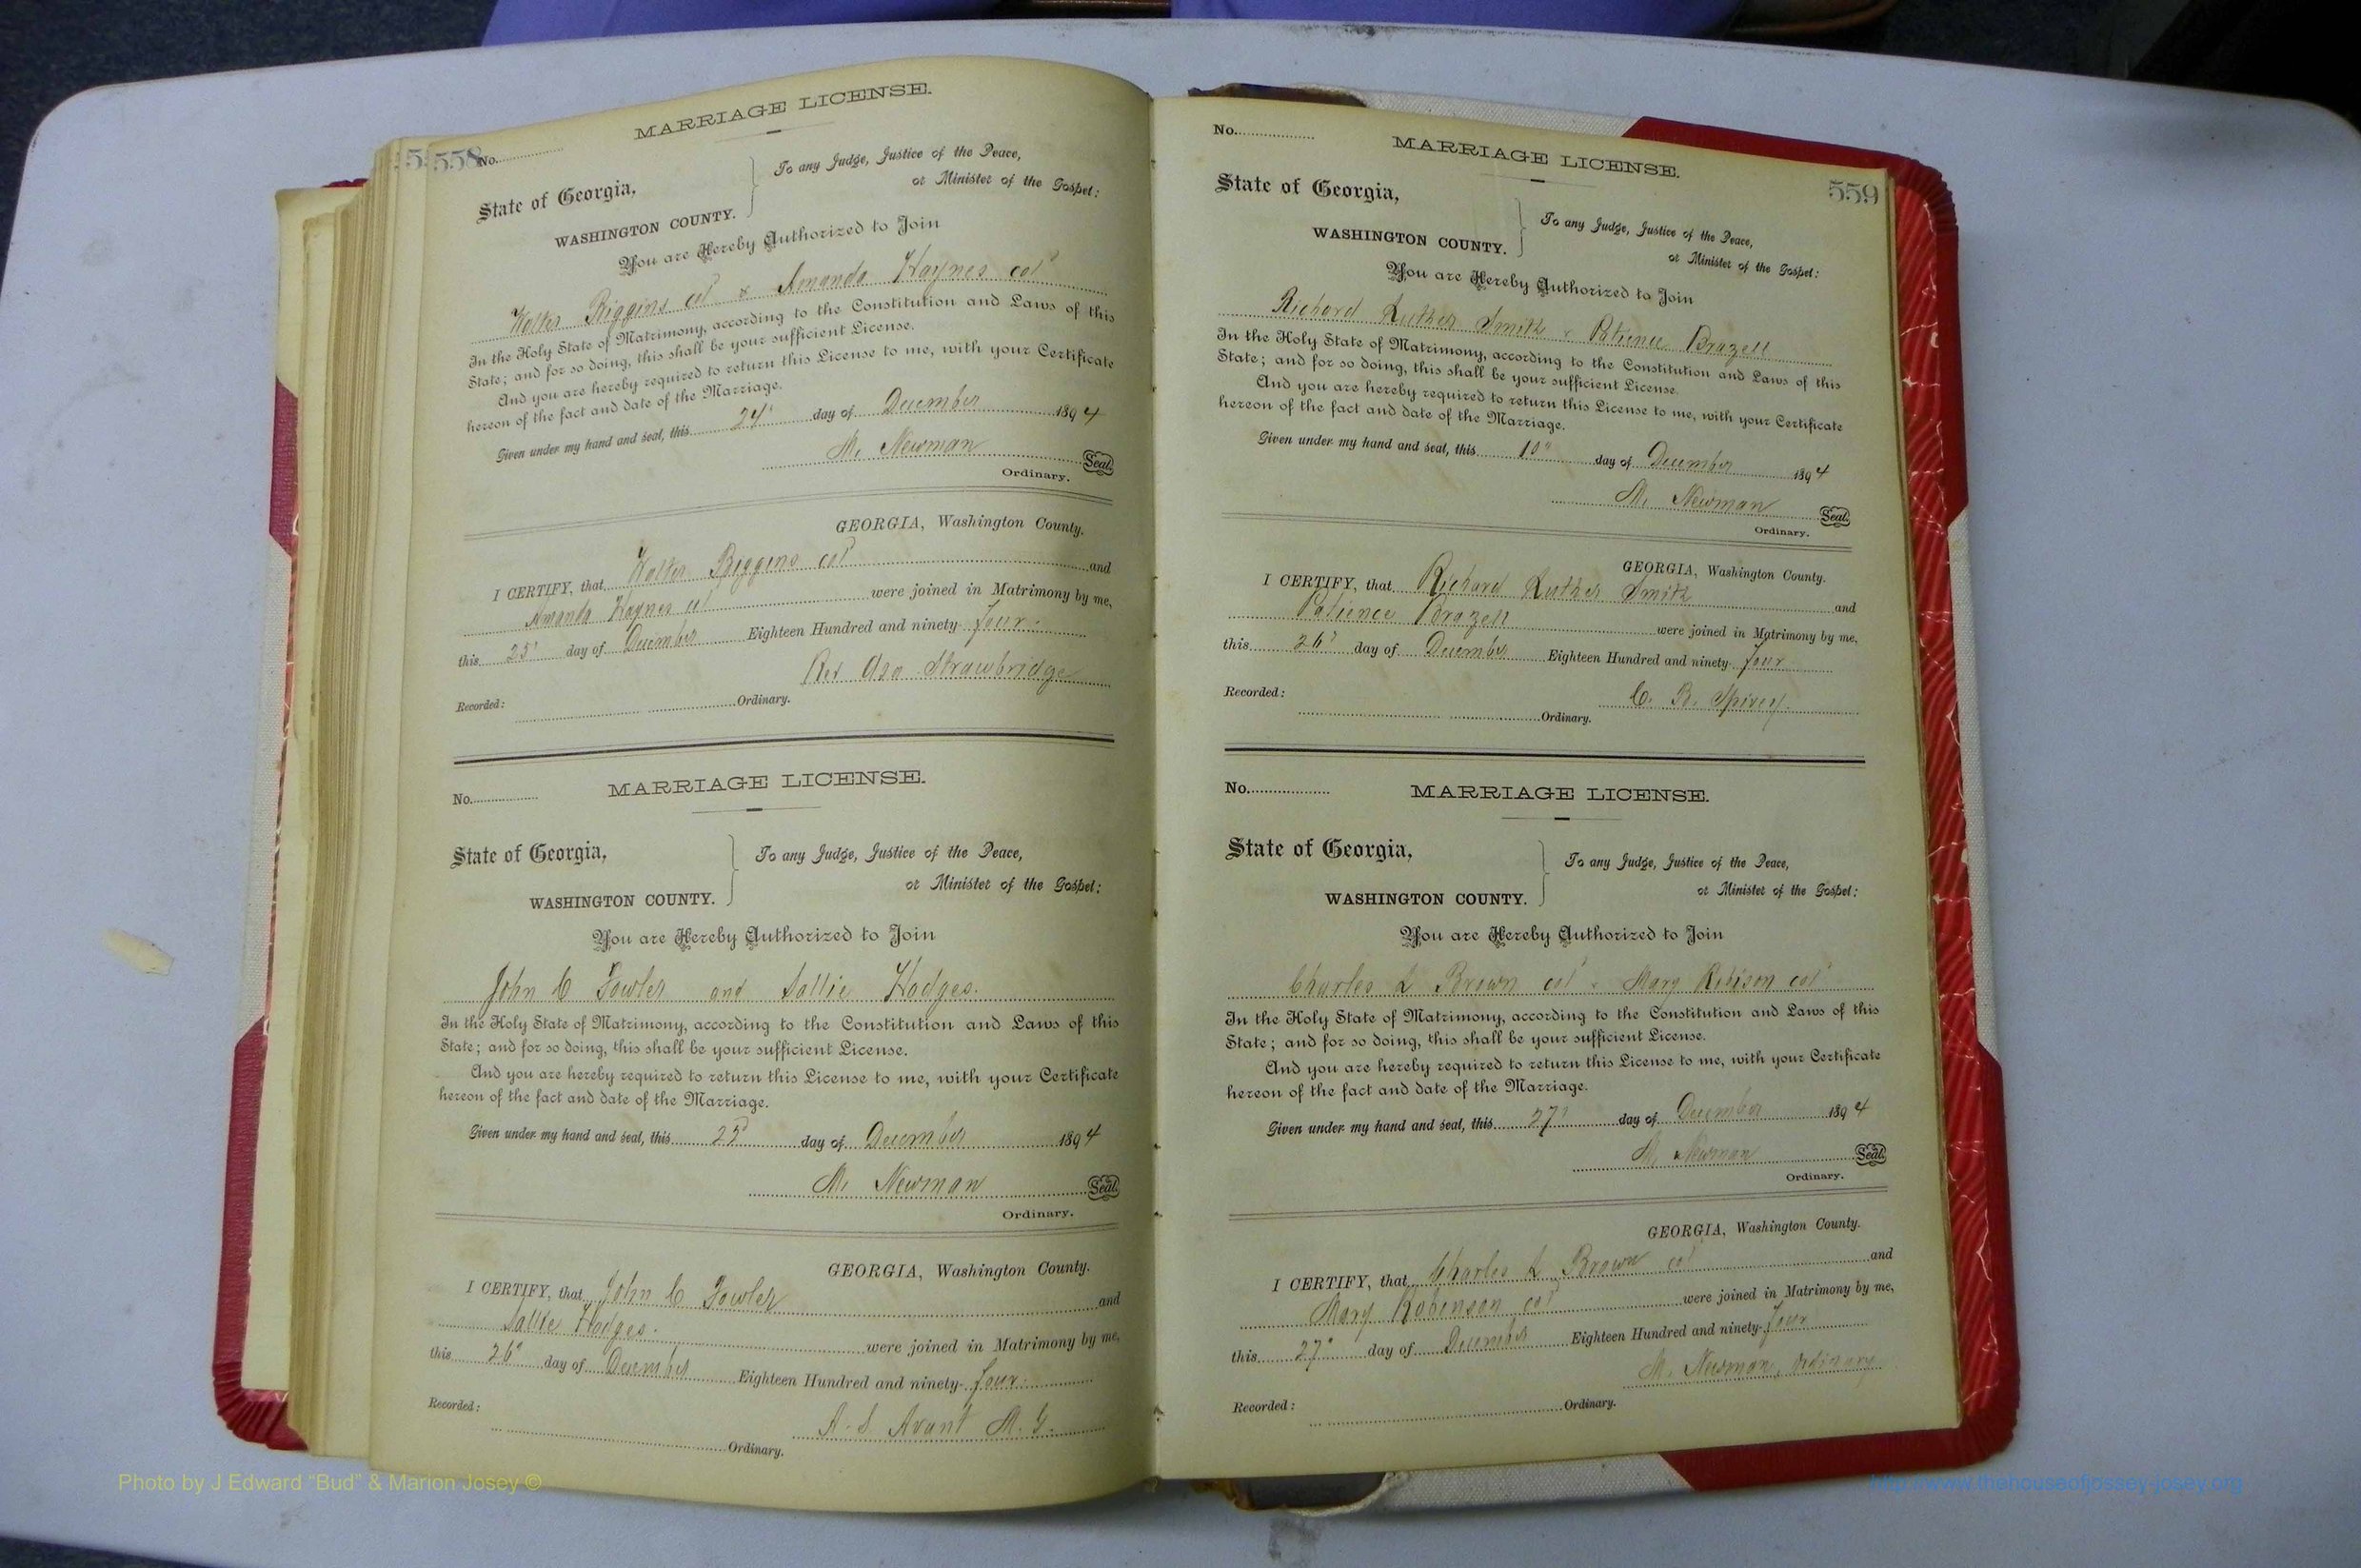 558
No.
MARRIAGE LICENSE.
State of Georgia,
WASHINGTON COUNTY.
To any Judge, Justice of the Peace,
or Minister of the Gospel:
You are Hereby Authorized to Join
Walter Riggins col & Amanda Haynes col
In the Holy State of Matrimony, according to the Constitution and Laws of this
State; and for so doing, this shall be your sufficient License.
And you are hereby required to return this License to me, with your Certificate
hereon of the fact and date of the Marriage.
Given under my hand and seal, this 24 day of December 1894
M. Newman Seal.
Ordinary.
GEORGIA, Washington County.
I CERTIFY, that Walter Riggins col and
Amanda Haynes col were joined in Matrimony by me,
this 25 day of December Eighteen Hundred and ninety-four.
Rev Asa Strawbridge
Recorded: Ordinary.
No. MARRIAGE LICENSE.
State of Georgia,
WASHINGTON COUNTY.
To any Judge, Justice of the Peace,
or Minister of the Gospel:
You are Hereby Authorized to Join
John C Fowler and Sallie Hodges.
In the Holy State of Matrimony, according to the Constitution and Laws of this
State; and for so doing, this shall be your sufficient License.
And you are hereby required to return this License to me, with your Certificate
hereon of the fact and date of the Marriage.
Given under my hand and seal, this day of December 1894
M. Newman Seal.
Ordinary.
GEORGIA, Washington County.
I CERTIFY, that John C Fowler and
Sallie Hodges. were joined in Matrimony by me,
this 26" day of December Eighteen Hundred and ninety-four.
A. S. Avant M. G.
Recorded: Ordinary.
No.
MARRIAGE LICENSE.
559
State of Georgia,
WASHINGTON COUNTY.
To any Judge, Justice of the Peace,
or Minister of the Gospel:
You are Hereby Authorized to Join
Richard Luther Smith & Patience Brazell
In the Holy State of Matrimony, according to the Constitution and Laws of this
State; and for so doing, this shall be your sufficient License.
And you are hereby required to return this License to me, with your Certificate
hereon of the fact and date of the Marriage.
Given under my hand and seal, this 10" day of December 1894
M. Newman Seal.
Ordinary.
GEORGIA, Washington County.
I CERTIFY, that Richard Luther Smith and
Patience Brazell were joined in Matrimony by me,
this 26 day of December Eighteen Hundred and ninety-four
C. B. Spivey.
Recorded: Ordinary.
No. MARRIAGE LICENSE.
State of Georgia,
WASHINGTON COUNTY.
To any Judge, Justice of the Peace,
or Minister of the Gospel:
You are Hereby Authorized to Join
Charles L Brown col & Mary Robison col
In the Holy State of Matrimony, according to the Constitution and Laws of this
State; and for so doing, this shall be your sufficient License.
And you are hereby required to return this License to me, with your Certificate
hereon of the fact and date of the Marriage.
Given under my hand and seal, this 27 day of December 1894
M. Newman Seal.
Ordinary.
GEORGIA, Washington County.
I CERTIFY, that Charles L Brown col and
Mary Robinson col were joined in Matrimony by me,
this 27" day of December Eighteen Hundred and ninety-four
M. Newman, Ordinary
Recorded: Ordinary.
Photo by J Edward "Bud" & Marion Josey ©
http://www.thehouseofjossey-josey.org